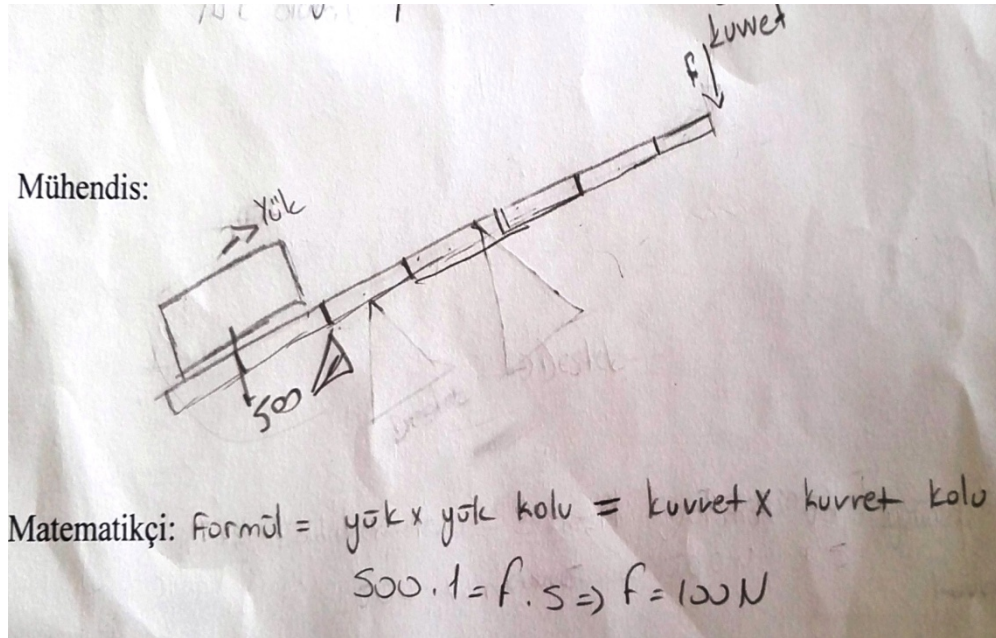 kuvvet
f
Mühendis:
Yük
500
Destek
Matematikçi: Formül = yük x yük kolu = kuvvet x kuvvet kolu
500.1=f.5=> f=100N